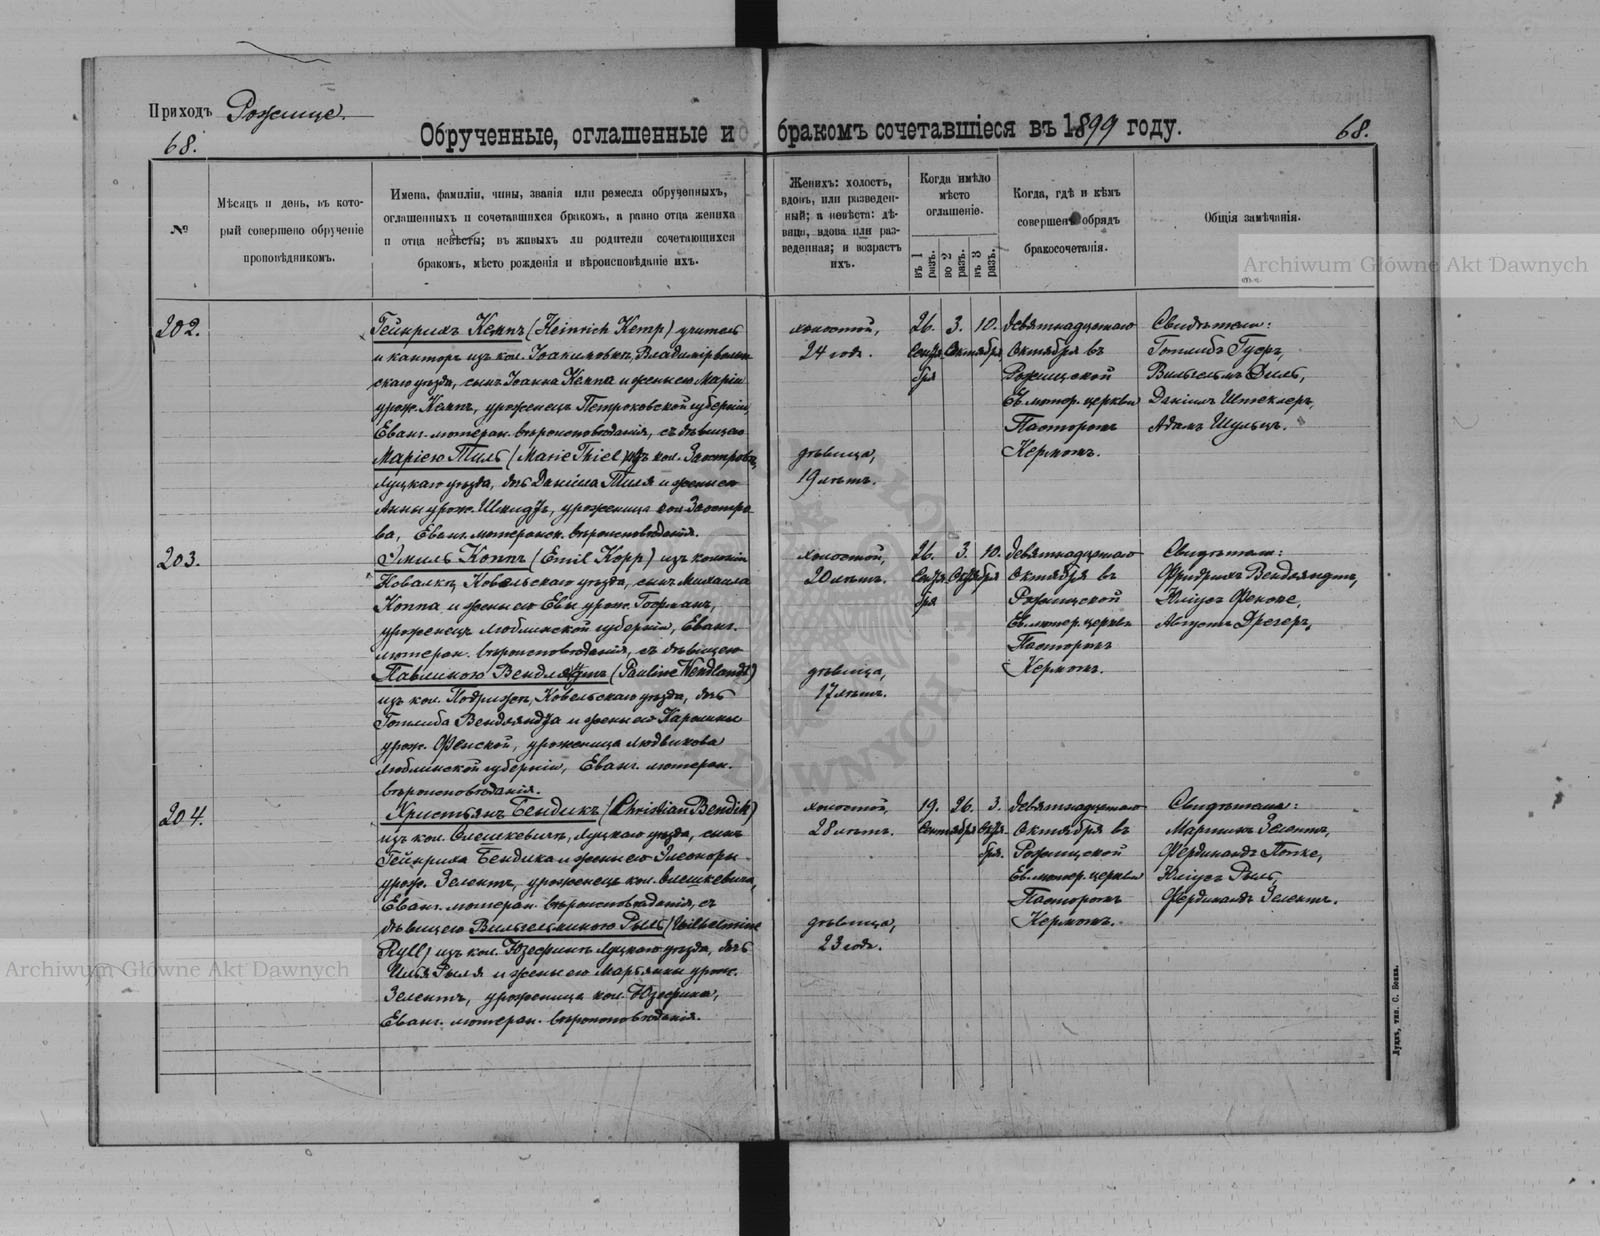 Приходъ Рожище.
68.
Обрученные, оглашенные и бракомъ сочетавшіеся въ 1899 году.
68.
№
Мѣсяцъ и день, въ кото-
рый совершено обрученіе
проповѣдникомъ.
Имена, фамиліи, чины, званія или ремесла обрученныхъ,
оглашенныхъ и сочетавшихся бракомъ, а равно отца жениха
и отца невѣсты; въ живыхъ ли родители сочетающихся
бракомъ, мѣсто рожденія и вѣроисповѣданіе ихъ.
Женихъ: холостъ,
вдовъ, или разведен-
ный; а невѣста: дѣ-
вица, вдова или раз-
веденная; и возрастъ
ихъ.
Когда имѣло
мѣсто
оглашеніе.
въ 1 разъ.
во 2 разъ.
въ 3 разъ.
Когда, гдѣ и кѣмъ
совершенъ обрядъ
бракосочетанія.
Общія замѣчанія.
202.
Гейнрихъ Кемпъ (Heinrich Kemp) учитель
и канторъ изъ кол. Іоакимовки, Владимірволын
скаго уѣзда, сынъ Іоанна Кемпа и жены его Маріи
урож. Кемпъ, уроженецъ Петроковской губерніи,
Еванг. лютеран. вѣроисповѣданія, съ дѣвицею
Маріею Тиль (Marie Thiel) изъ кол. Заострова,
Луцкаго уѣзда, дочь Даніила Тиля и жены его
Анны урож. Шмидтъ, уроженица кол. Заостро
ва, Еванг. лютеранск. вѣроисповѣданія.
холостой,
24 года.
дѣвица,
19 лѣтъ.
26. 3. 10.
Сентя Октября
бря
девятнадцатаго
Октября въ
Рожищской
Ев. лютер. церкви
Пасторомъ
Кермомъ.
Свидѣтели:
Готлибъ Гуоръ,
Вильгельмъ Диль,
Даніилъ Штеклеръ,
Адамъ Шульцъ.
203.
Эмиль Коппъ (Emil Kopp) изъ колоніи
Новалки, Ковельскаго уѣзда, сынъ Михаила
Коппа и жены его Евы урож. Гофманъ,
уроженецъ Люблинской губерніи, Еванг.
лютеран. вѣроисповѣданія, съ дѣвицею
Павлиною Вендляндтъ (Pauline Wendlandt)
изъ кол. Подрижъ, Ковельскаго уѣзда, дочь
Готлиба Вендляндта и жены его Каролины
урож. Фенской, уроженица Людвикова
Люблинской губерніи, Еванг. лютеран.
вѣроисповѣданія.
холостой,
20 лѣтъ.
дѣвица,
17 лѣтъ.
26. 3. 10.
Сентя Октября
бря
девятнадцатаго
Октября въ
Рожищской
Ев. лютер. церкви
Пасторомъ
Кермомъ.
Свидѣтели:
Фридрихъ Вендляндтъ,
Юліусъ Фенске,
Августъ Дрегеръ.
204.
Христьянъ Бендикъ (Christian Bendik)
изъ кол. Олешкевичъ, Луцкаго уѣзда, сынъ
Гейнриха Бендика и жены его Элеоноры
урож. Зелентъ, уроженецъ кол. Олешкевича,
Еванг. лютеран. вѣроисповѣданія, съ
дѣвицею Вильгельминою Рыль (Wilhelmine
Ryll) изъ кол. Юзефинъ Луцкаго уѣзда, дочь
Илья Рыля и жены его Марьянны урож.
Зелентъ, уроженица кол. Юзефина,
Еванг. лютеран. вѣроисповѣданія.
холостой,
28 лѣтъ.
дѣвица,
23 года.
19. 26. 3.
Сентября Октя
бря.
девятнадцатаго
Октября въ
Рожищской
Ев. лютер. церкви
Пасторомъ
Кермомъ.
Свидѣтели:
Мартинъ Зелентъ,
Фердинандъ Попке,
Юліусъ Рыль
Фердинандъ Зелентъ.
Луцкъ, тип. С. Бокка.
Archiwum Główne Akt Dawnych
Archiwum Główne Akt Dawnych